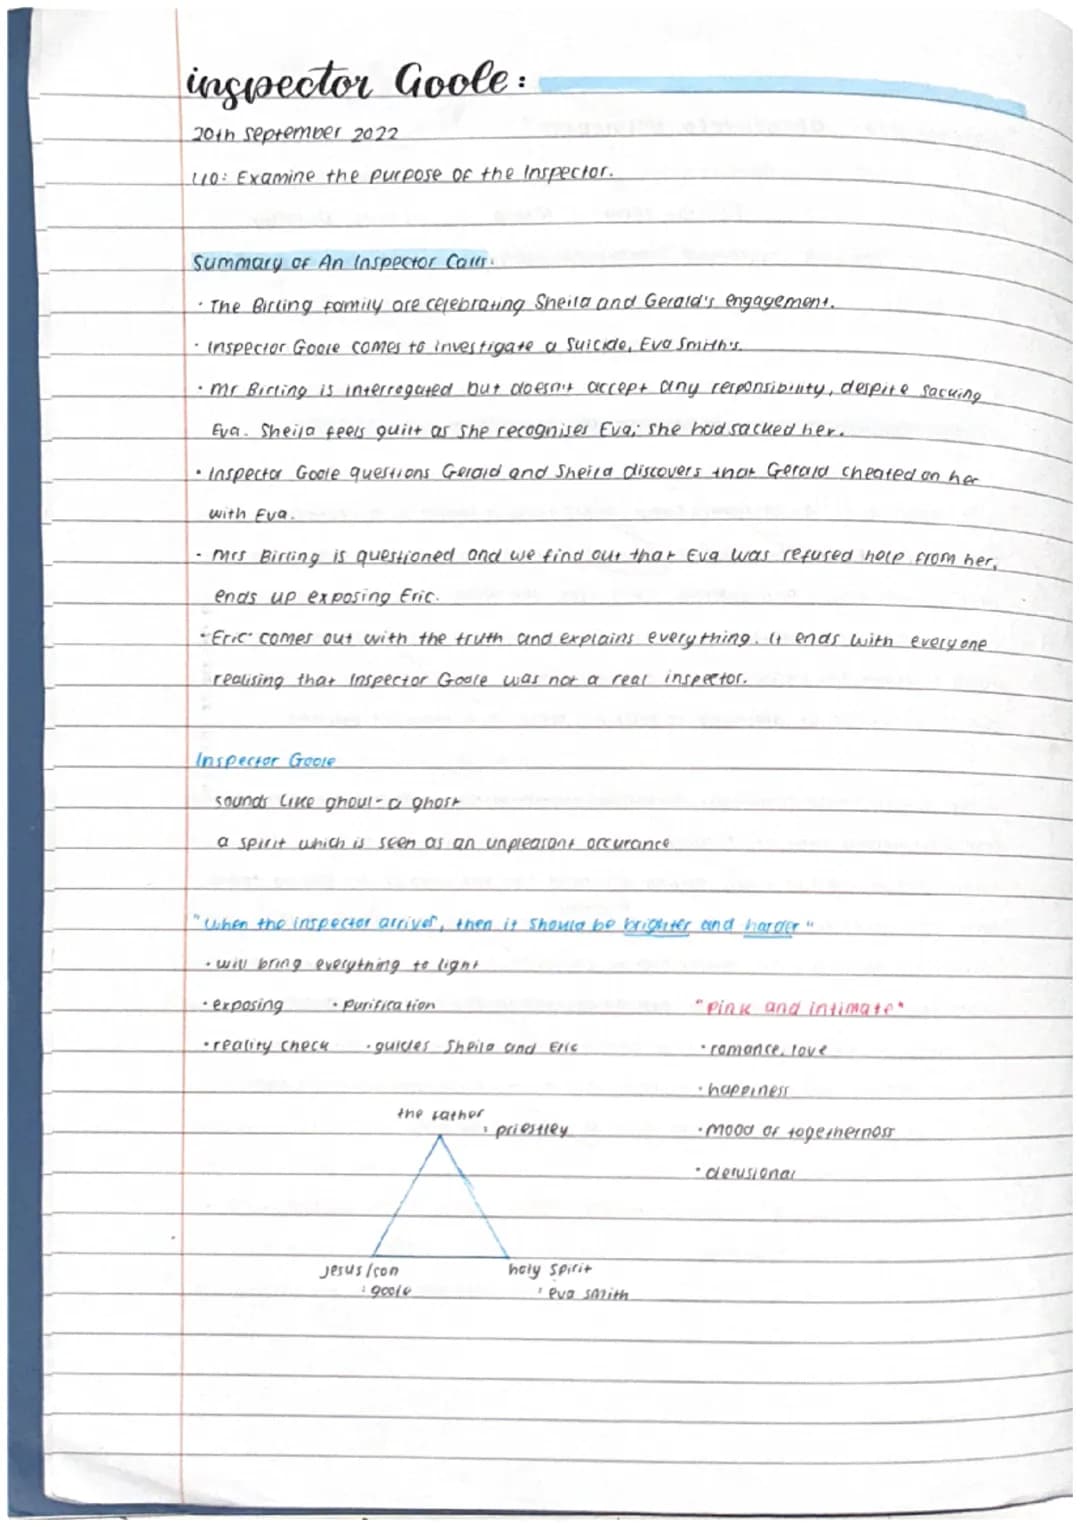 inspector Goole:
20th september 2022
LO: Examine the purpose of the Inspector.
Summary of An Inspector Calls.
· The Birling family are celebrating Sheila and Gerald's engagement.
· Inspector Goole comes to investigate a suicide, Eva Smith's.
· Mr Birling is interregated but doesn't accept any responsibility, despite sacking
Eva. Sheila feels guilt as she recognises Eva; she had sacked her.
· Inspector Goole questions Gerald and Sheila discovers that Gerald cheated on her
with Eva.
· Mrs Birling is questioned and we find out that Eva was refused help from her,
ends up exposing Eric.
· Eric comes out with the truth and explains everything. It ends with everyone
realising that Inspector Goole was not a real inspector.
Inspector Goole
sounds like ghoul - a ghost
a spirit which is seen as an unpleasant occurance
"When the inspector arrives, then it should be brighter and harder"
· will bring everything to light
· exposing · purification
"Pink and intimate"
· reality check · guides Sheila and Eric
· romance, love
· happiness
the father
: priestley
· mood of togetherness
· delusional
Jesus/son
: goole
holy spirit
: eva smith